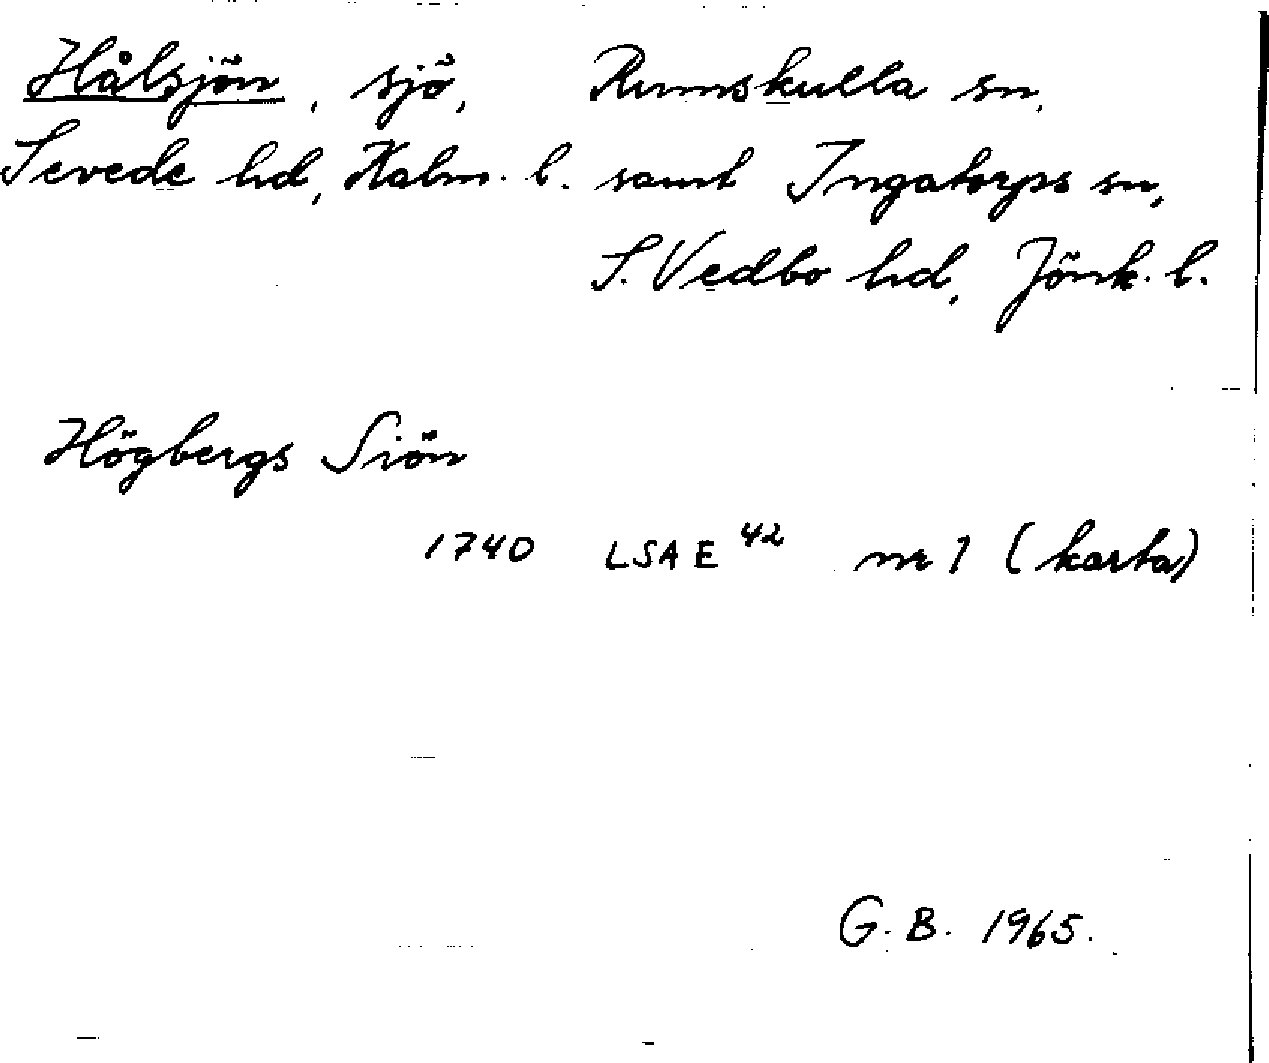 Hålsjön, sjö, Rumskulla sn,
Sevede hd, Kalm. l. samt Ingatorps sn,
S. Vedbo hd, Jönk. l.
Högbergs Siön
1740 LSA E 42 nr 1 (karta)
G. B. 1965.